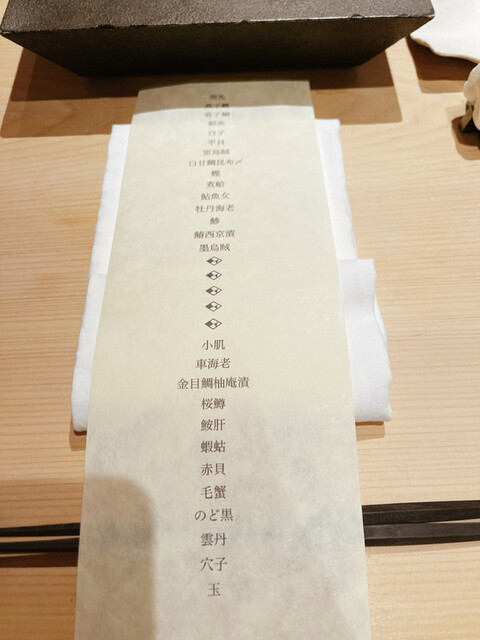 銀魚
白子
平貝
蛍烏賊
白甘鯛昆布〆
鰹
煮蛤
鮎魚女
牡丹海老
鯵
鰆西京漬
墨烏賊
小肌
車海老
金目鯛柚庵漬
桜鱒
鮟肝
蝦蛄
赤貝
毛蟹
のど黒
雲丹
穴子
玉